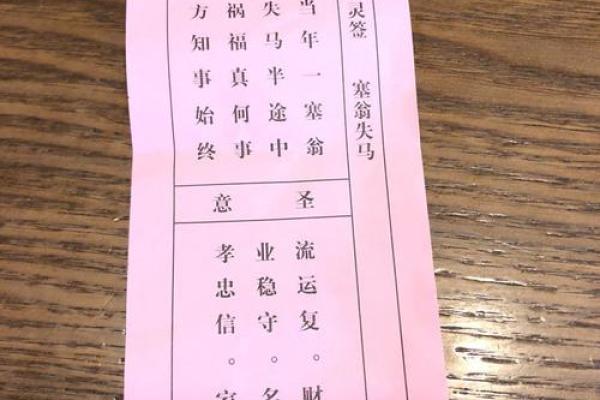 灵签 塞翁失马
当年一塞翁
失马半途中
祸福真何事
方知事始终
圣意
流运复。财
业稳守。名
孝忠信。